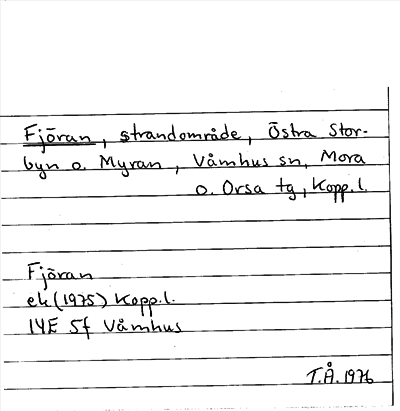 Fjöran, strandområde, Östra Stor-
byn o. Myran, Våmhus sn, Mora
o. Orsa tg, Kopp.l.
Fjöran
ek (1975) Kopp.l.
14E 5f Våmhus
T.Å. 1976